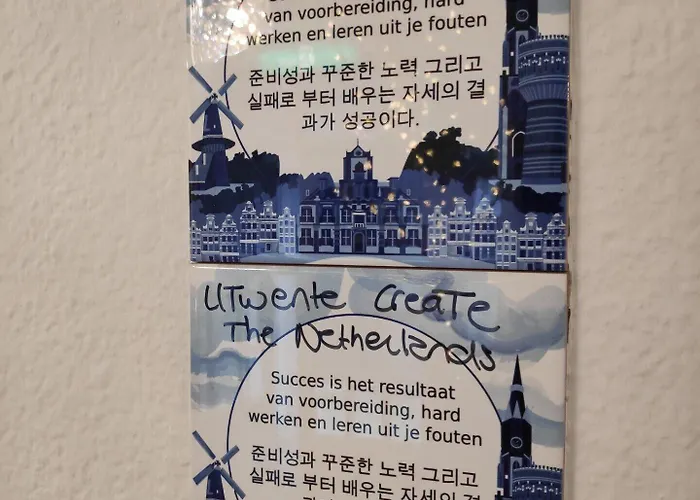 van voorbereiding, hard
werken en leren uit je fouten
준비성과 꾸준한 노력 그리고
실패로 부터 배우는 자세의 결
과가 성공이다.
UTwente CreaTe
The Netherlands
Succes is het resultaat
van voorbereiding, hard
werken en leren uit je fouten
준비성과 꾸준한 노력 그리고
실패로 부터 배우는 자세의 결